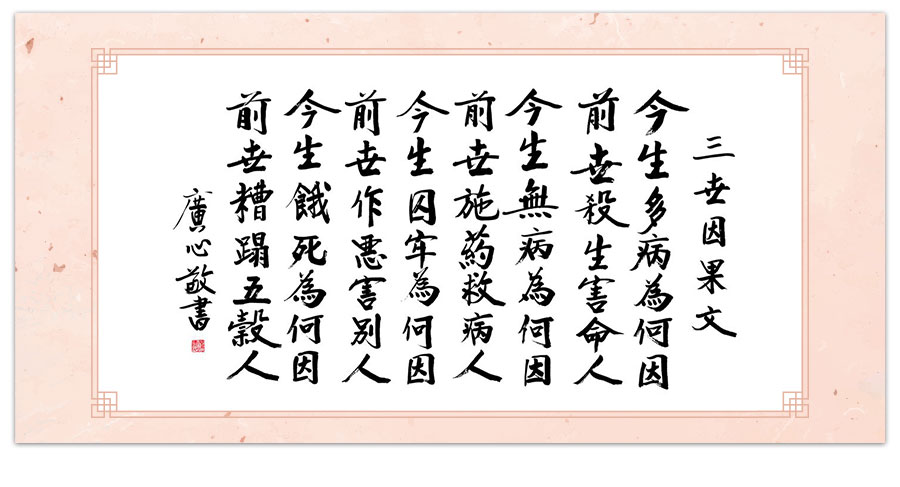 三世因果文
今生多病為何因
前世殺生害命人
今生無病為何因
前世施药救病人
今生囚牢為何因
前世作惡害別人
今生餓死為何因
前世糟蹋五穀人
廣心敬書